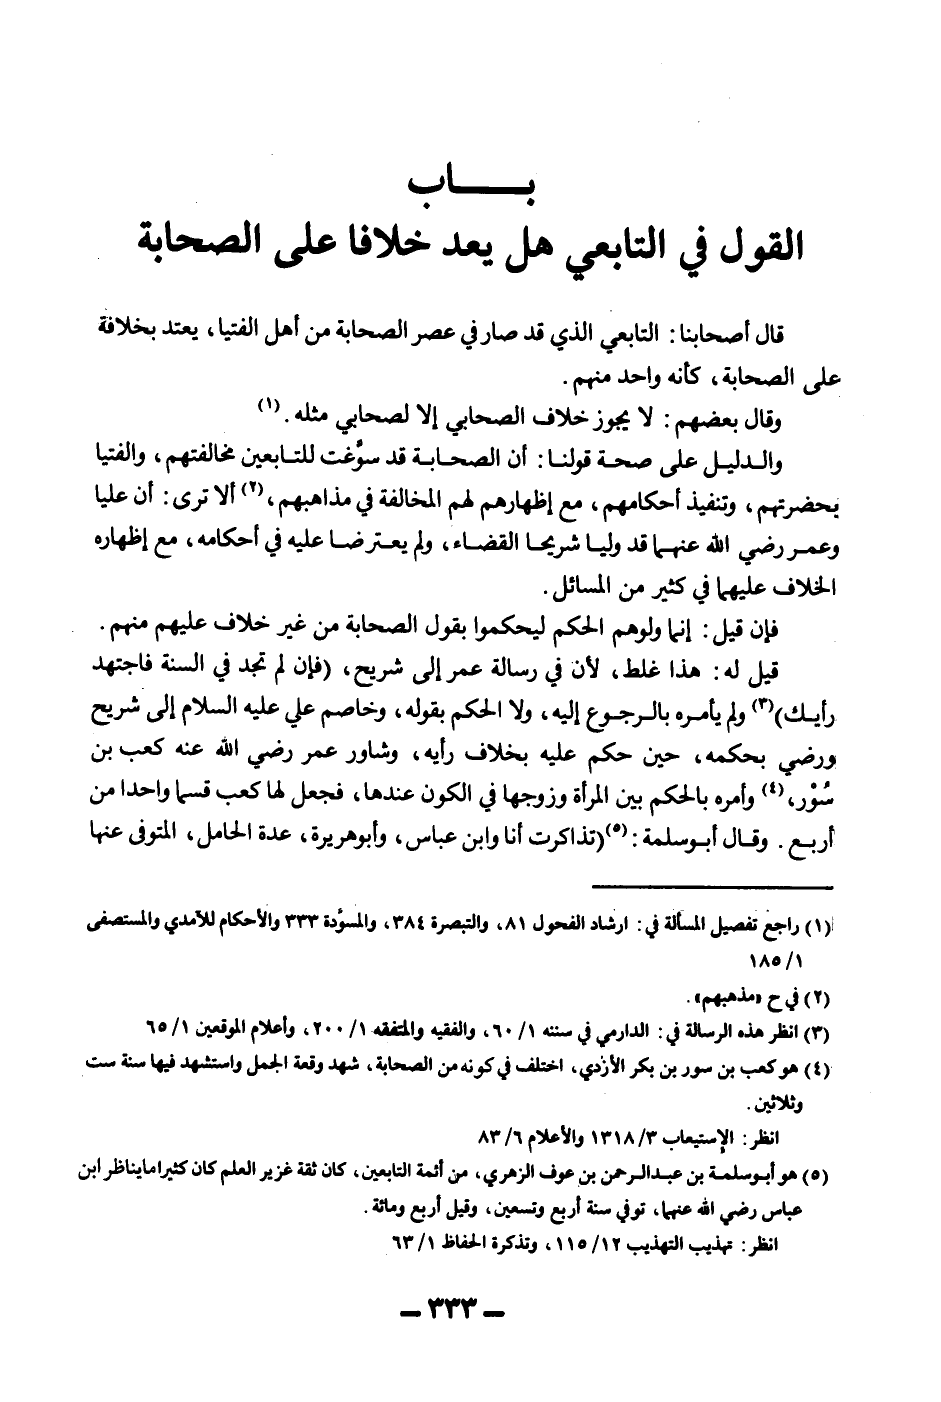 بـــــاب
القول في التابعي هل يعد خلافا على الصحابة
قال أصحابنا: التابعي الذي قد صار في عصر الصحابة من أهل الفتيا، يعتد بخلافة
على الصحابة، كأنه واحد منهم.
وقال بعضهم: لا يجوز خلاف الصحابي إلا لصحابي مثله.(١)
والـدليـل على صحـة قولنـا: أن الصحـابـة قد سوَّغت للتـابعين مخالفتهم، والفتيا
بحضرتهم، وتنفيذ أحكامهم، مع إظهارهم لهم المخالفة في مذاهبهم،(٢) ألا ترى: أن عليا
وعمـر رضي الله عنهـما قد وليـا شريحـا القضـاء، ولم يعـترضـا عليه في أحكامه، مع إظهاره
الخلاف عليهما في كثير من المسائل.
فإن قيل: إنما ولوهم الحكم ليحكموا بقول الصحابة من غير خلاف عليهم منهم.
قيل له: هذا غلط، لأن في رسالة عمر إلى شريح، (فإن لم تجد في السنة فاجتهد
رأيـك)(٣) ولم يأمـره بالـرجـوع إليه، ولا الحكم بقوله، وخاصم علي عليه السلام إلى شريح
ورضي بحكمه، حين حكم عليه بخلاف رأيه، وشاور عمر رضي الله عنه كعب بن
سُوْر،(٤) وأمره بالحكم بين المرأة وزوجها في الكون عندها، فجعل لها كعب قسما واحدا من
أربـع. وقـال أبـوسلمة:(٥)(تذاكرت أنا وابن عباس، وأبوهريرة، عدة الحامل، المتوفى عنها
(١) راجع تفصيل المسألة في: ارشاد الفحول ٨١، والتبصرة ٣٨٤، والمسوَّدة ٣٣٣ والأحكام للآمدي والمستصفى
١/ ١٨٥
(٢) في ح «مذهبهم».
(٣) انظر هذه الرسالة في: الدارمي في سننه ١/ ٦٠، والفقيه والمتفقه ١/ ٢٠٠، وأعلام الموقعين ١/ ٦٥
(٤) هو كعب بن سور بن بكر الأزدي، اختلف في كونه من الصحابة، شهد وقعة الجمل واستشهد فيها سنة ست
وثلاثين.
انظر: الإستيعاب ٣/ ١٣١٨ والأعلام ٦/ ٨٣
(٥) هو أبـوسلمـة بن عبـدالـرحمن بن عوف الزهري، من أئمة التابعين، كان ثقة غزير العلم كان كثيرا مايناظر ابن
عباس رضي الله عنهما، توفي سنة أربع وتسعين، وقيل أربع ومائة.
انظر: تهذيب التهذيب ١٢/ ١١٥، وتذكرة الحفاظ ١/ ٦٣
ـ ٣٣٣ ـ